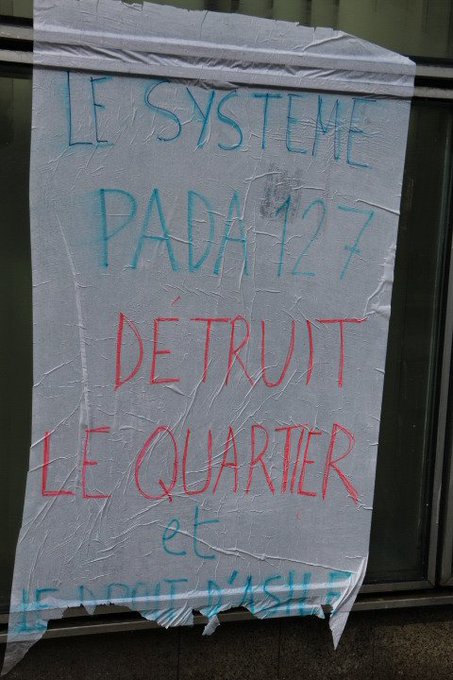 LE SYSTEME
PADA 127
DÉTRUIT
LE QUARTIER
et
LE DROIT D'ASILE